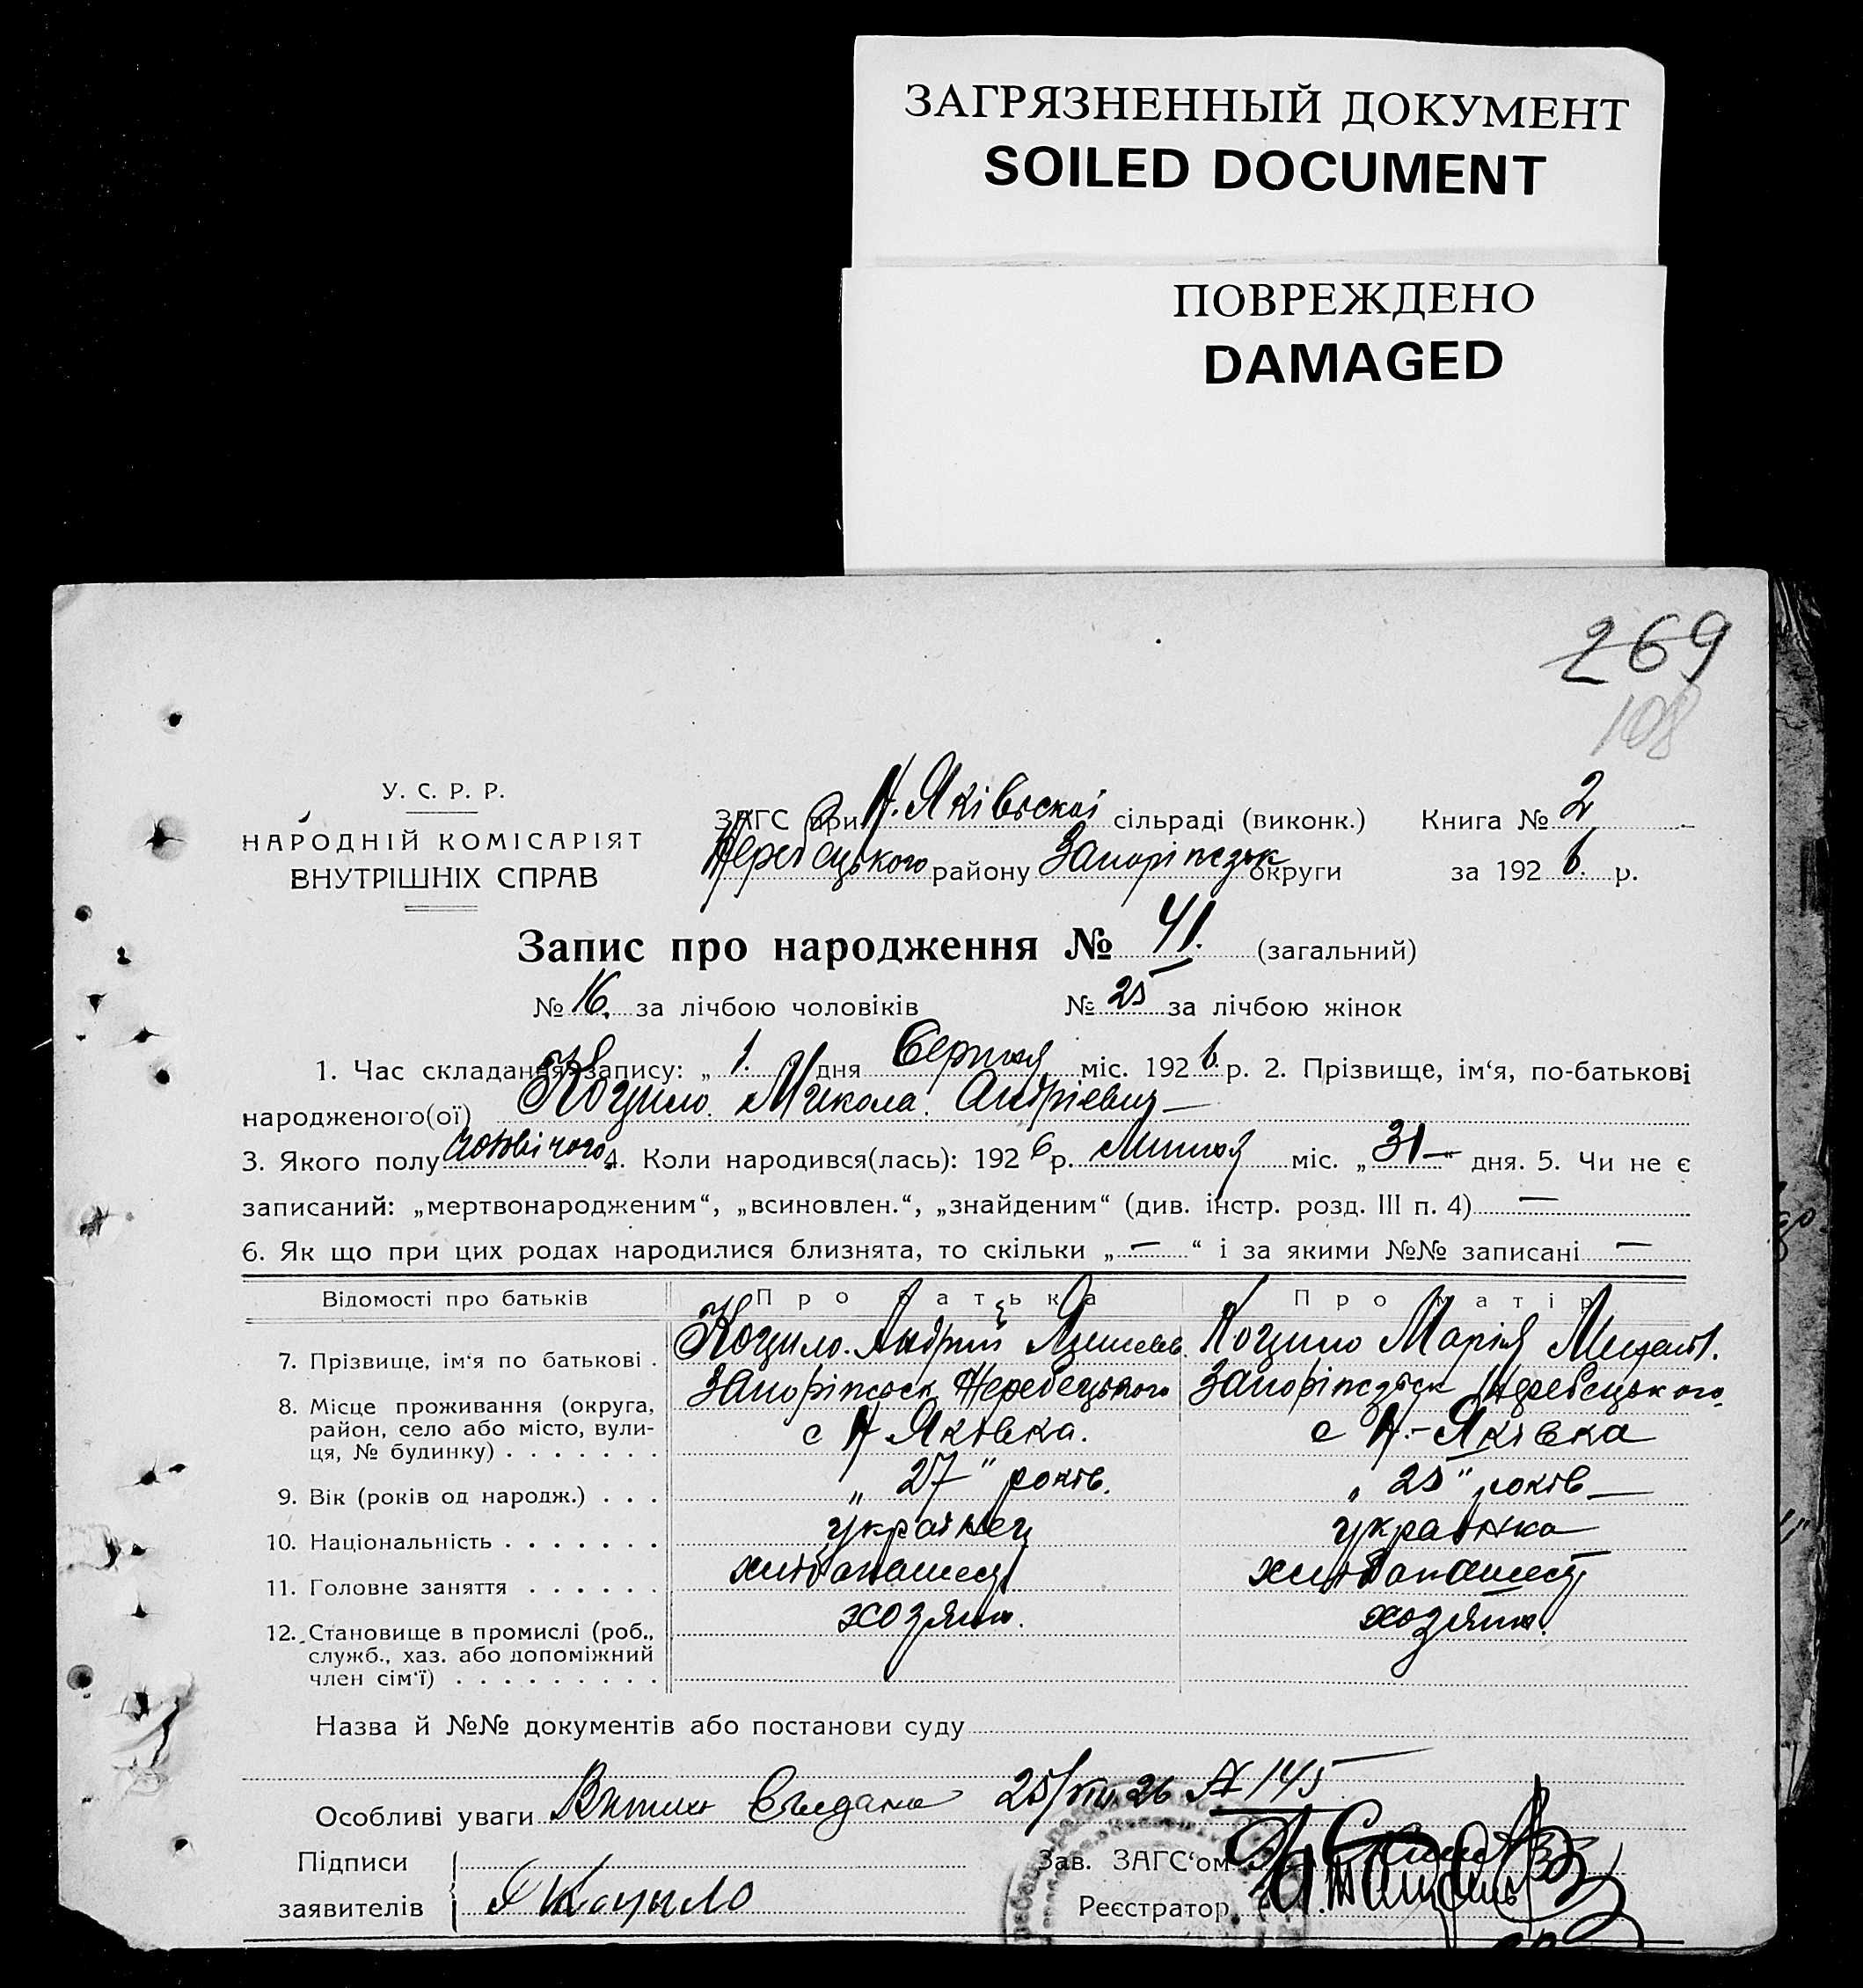 ЗАГРЯЗНЕННЫЙ ДОКУМЕНТ
SOILED DOCUMENT
ПОВРЕЖДЕНО
DAMAGED
269
108
У. С. Р. Р.
НАРОДНІЙ КОМІСАРІЯТ
ВНУТРІШНІХ СПРАВ
ЗАГС при Н. Яківській сільраді (виконк.) Книга № 2
Жеребецького району Запоріжськ округи за 1926 р.
Запис про народження № 41. (загальний)
№ 16. за лічбою чоловіків № 25 за лічбою жінок
1. Час складання запису: „ 1. дня Серпня міс. 1926 р. 2. Прізвище, ім‘я, по-батькові
народженого(ої) Коцило Микола Андріевич
3. Якого полу чоловічого 4. Коли народився(лась): 1926 р. Липня міс. „ 31 “ дня. 5. Чи не є
записаний: „мертвонародженим“, „всиновлен.“, „знайденим“ (див. інстр. розд. III п. 4) —
6. Як що при цих родах народилися близнята, то скільки „ — “ і за якими №№ записані —
Відомості про батьків Про батька Про матір
7. Прізвище, ім‘я по батькові . Коцило Андрій Коцило Марія
8. Місце проживання (округа, Запоріжськ Жеребецького Запоріжськ Жеребецького
район, село або місто, вули- с Н Яківка. с Н.-Яківка
ця, № будинку) . . . . . . .
9. Вік (років од народж.) . . . „ 27 “ років. „ 25 “ років
10. Національність . . . . . . . українец українка
11. Головне заняття . . . . . . хлібопашец хлібопашец
12. Становище в промислі (роб., хозяін. хозяіка.
служб., хаз. або допоміжний
член сім‘ї) . . . . . . . . . .
Назва й №№ документів або постанови суду
Особливі уваги 26 № 145
Підписи Зав. ЗАГС‘ом
заявителів Коцыло Реєстратор